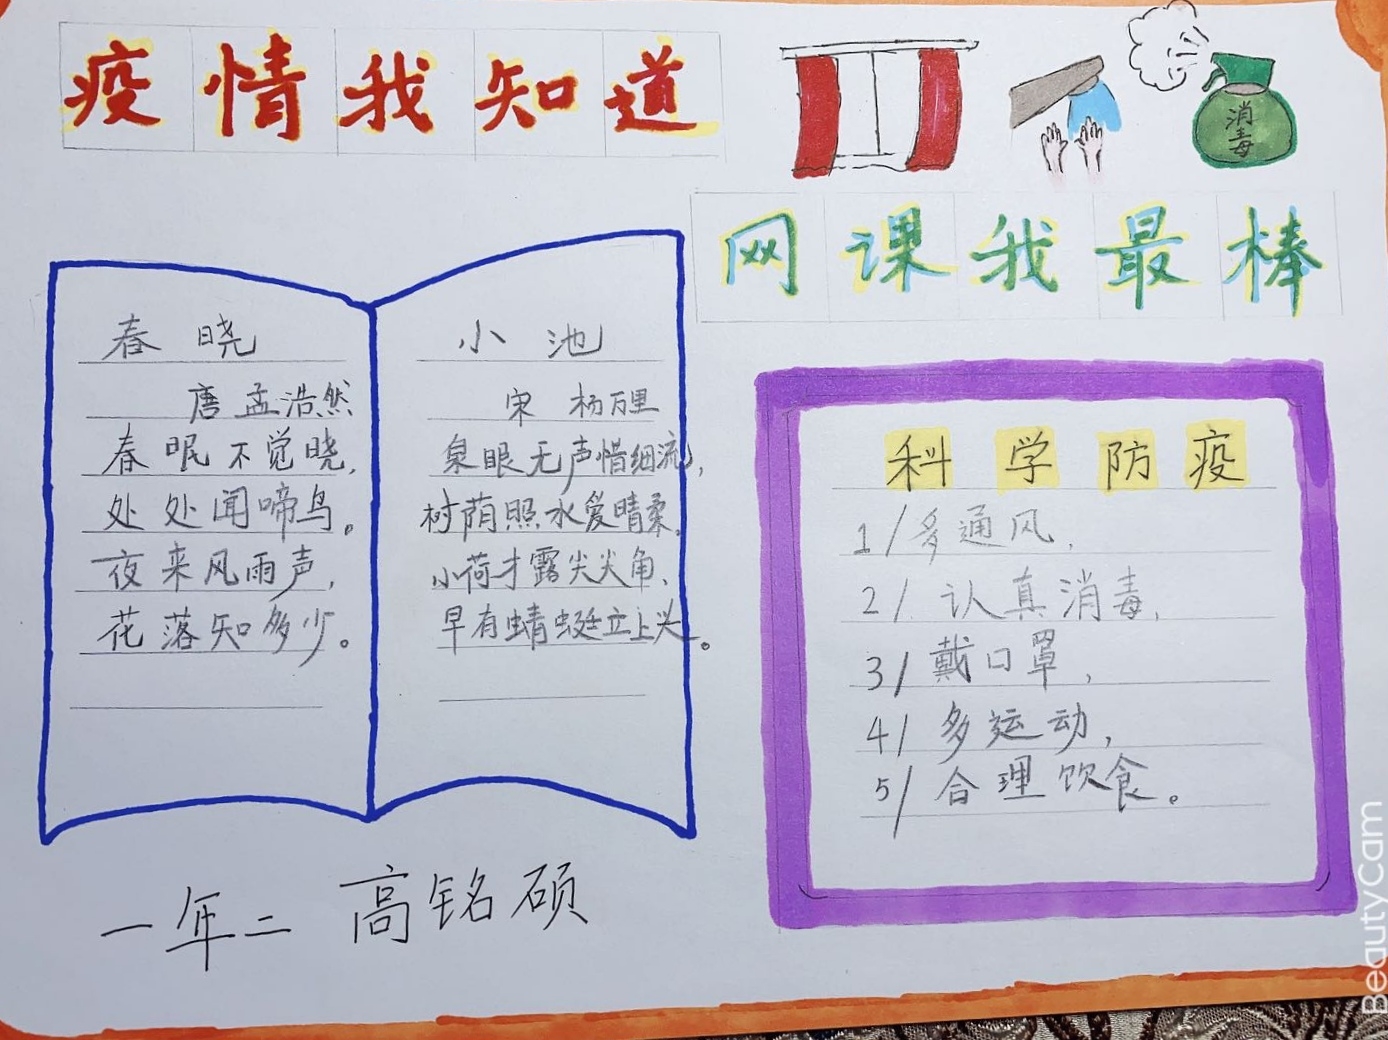 疫情我知道
消毒
网课我最棒
春晓
唐 孟浩然
春眠不觉晓，
处处闻啼鸟。
夜来风雨声，
花落知多少。
小池
宋 杨万里
泉眼无声惜细流，
树荫照水爱晴柔。
小荷才露尖尖角、
早有蜻蜓立上头。
科学防疫
1/多通风，
2/认真消毒，
3/戴口罩，
4/多运动，
5/合理饮食。
一年二 高铭硕
BeautyCam